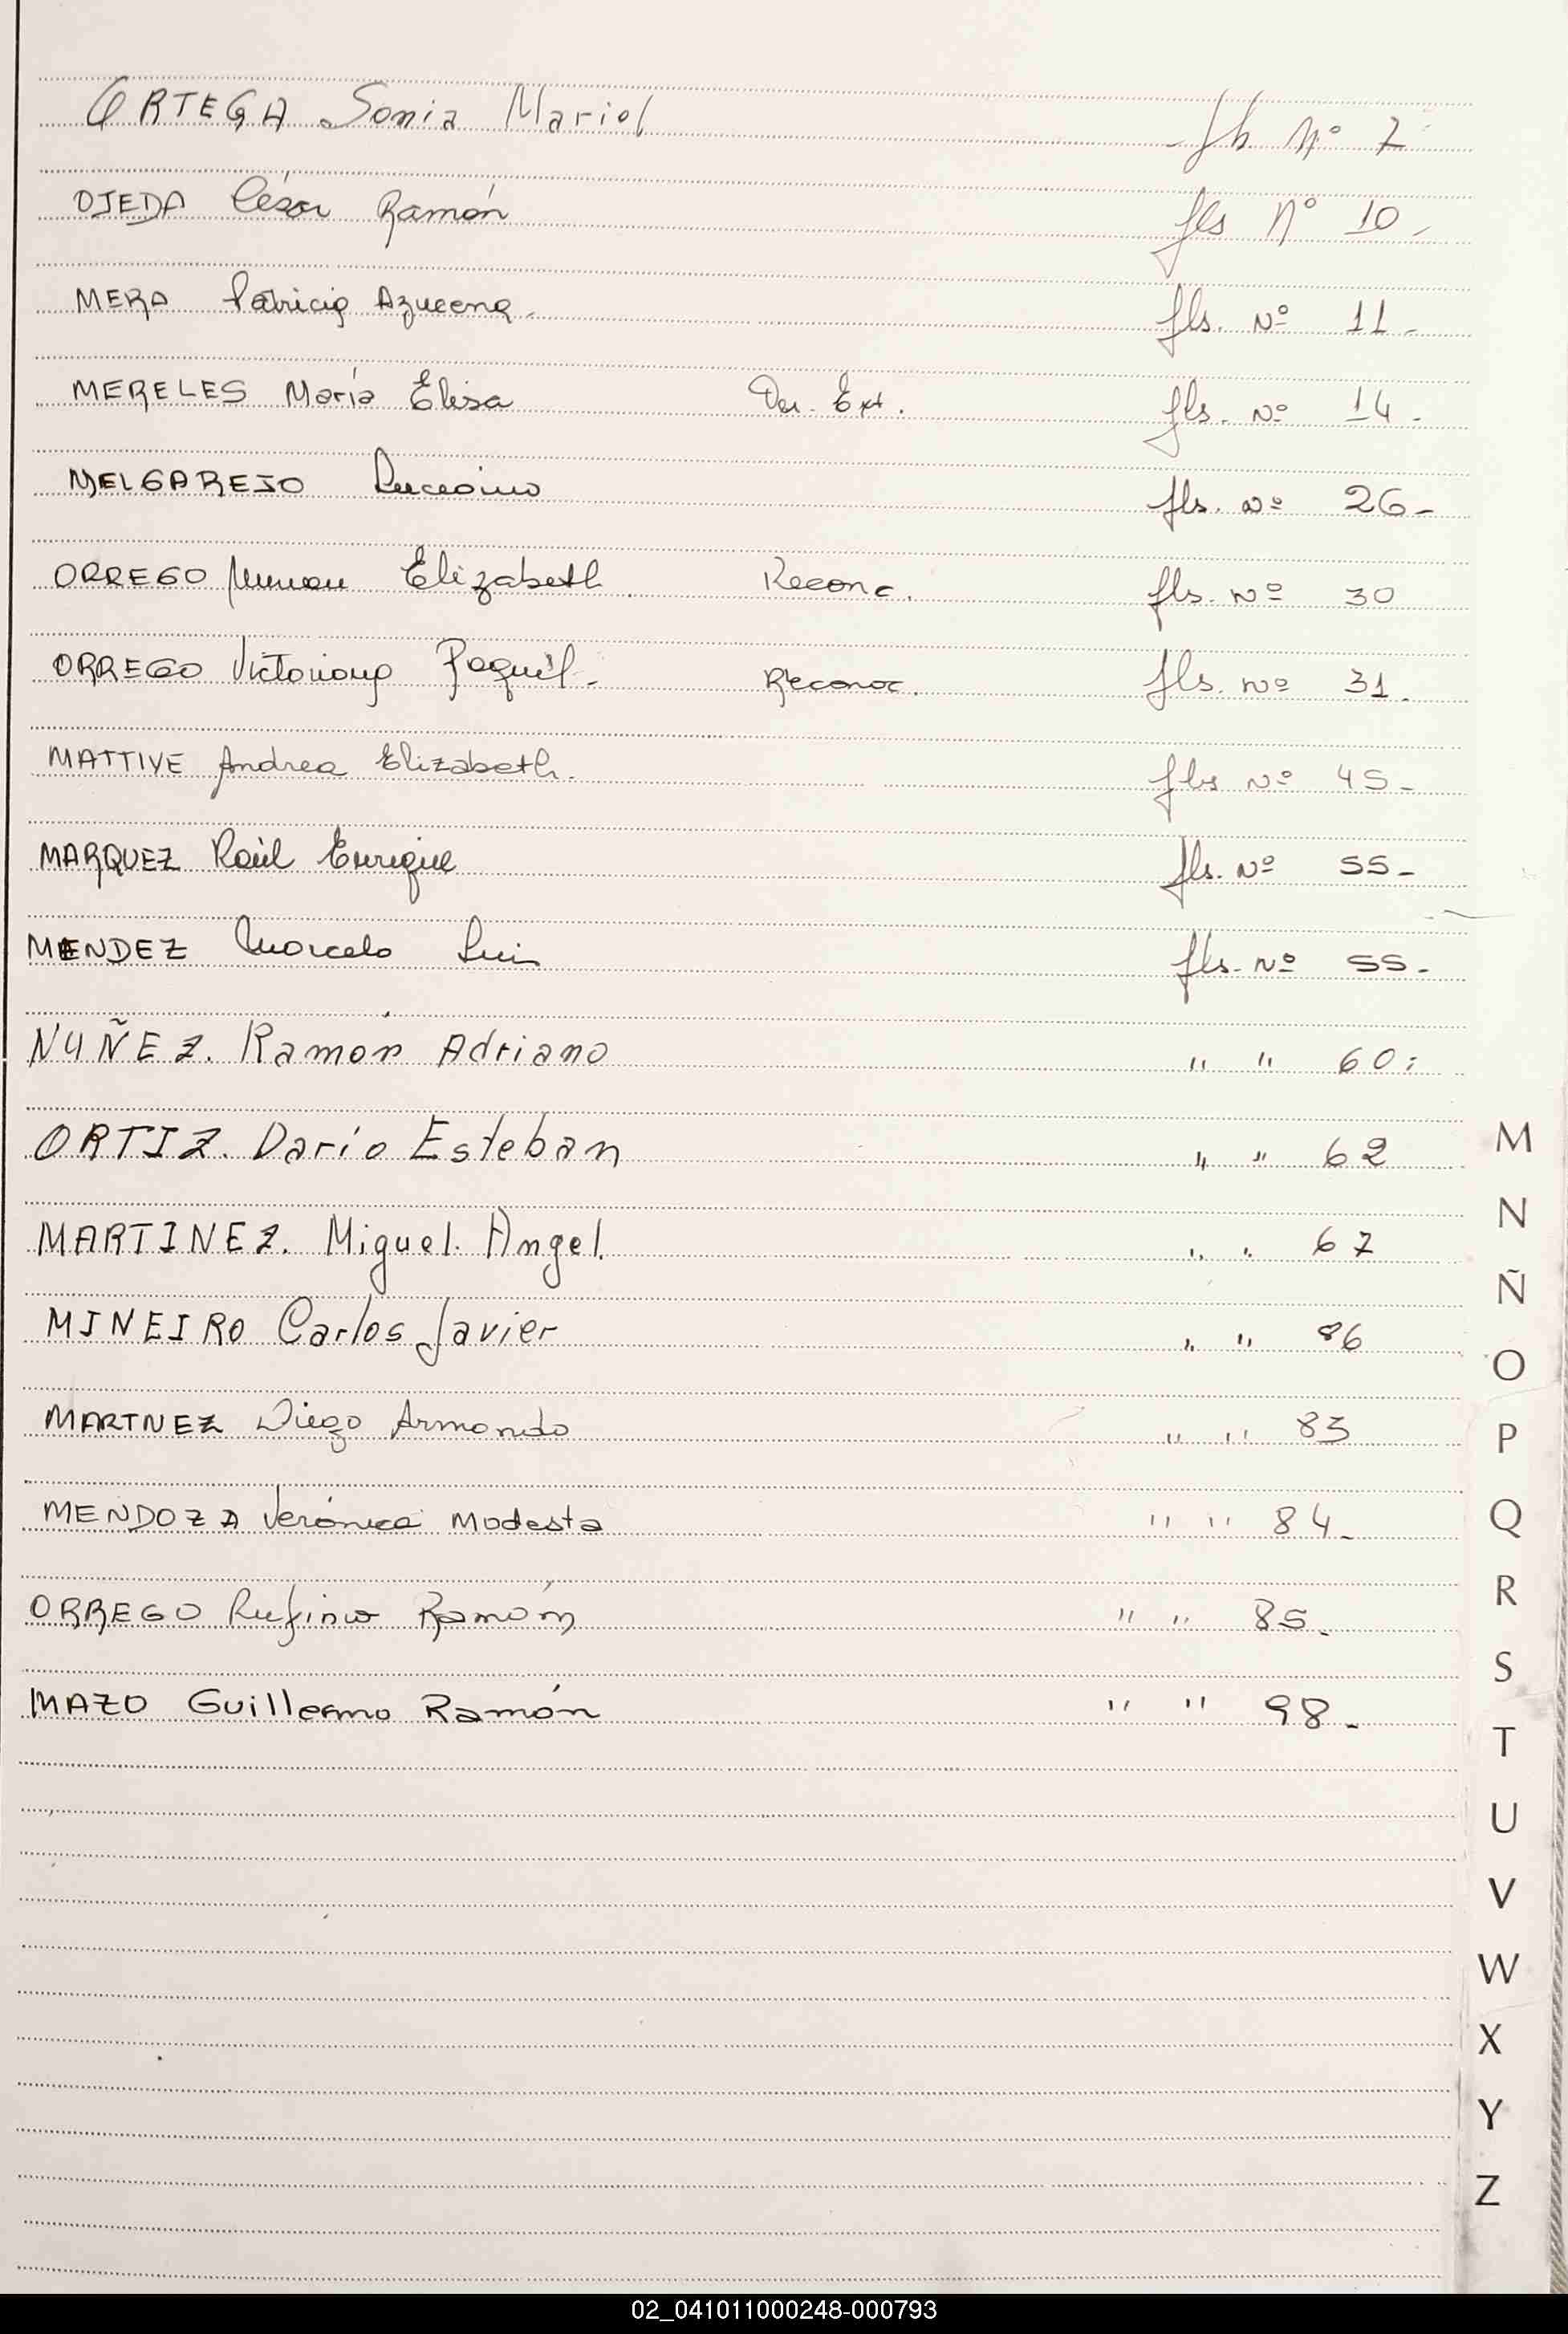 ORTEGA Sonia Mariel fls Nº 7
OJEDA César Ramón fls Nº 10-
MERA Patricia Azucena. fls. Nº 11-
MERELES María Elisa Ext. fls. Nº 14-
MELGAREJO Luciano fls. Nº 26-
ORREGO Elizabeth Reconc. fls. Nº 30
ORREGO Victoriana Raquel. Reconoc. fls. Nº 31.
MATTIVE Andrea Elizabeth. fls Nº 45-
MARQUEZ Raúl Enrique fls. Nº 55-
MENDEZ Marcelo Luis fls. Nº 55-
NUÑEZ. Ramón Adriano " " 60:
ORTIZ. Darío Esteban " " 62
MARTINEZ. Miguel. Angel. " " 67
MINEIRO Carlos Javier " " 86
MARTNEZ Diego Armando " " 83
MENDOZA Verónica Modesta " " 84-
ORREGO Rufino Ramón " " 85.
MAZO Guillermo Ramón " " 98-
M
N
Ñ
O
P
Q
R
S
T
U
V
W
X
Y
Z
02_041011000248-000793